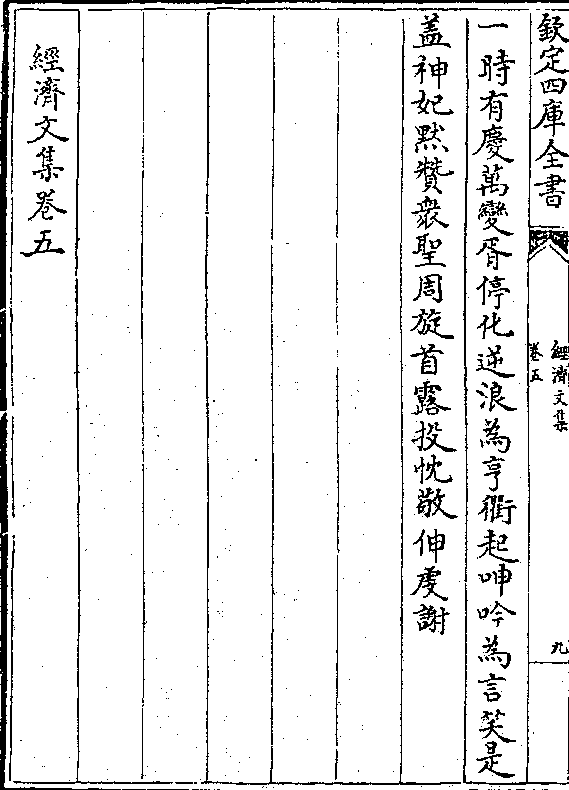 欽定四庫全書
經濟文集
卷五
九
一時有慶萬變胥停化逆浪為亨衢起呻吟為言笑是
盖神妃黙贊衆聖周旋首露投忱敬伸虔謝
經濟文集卷五